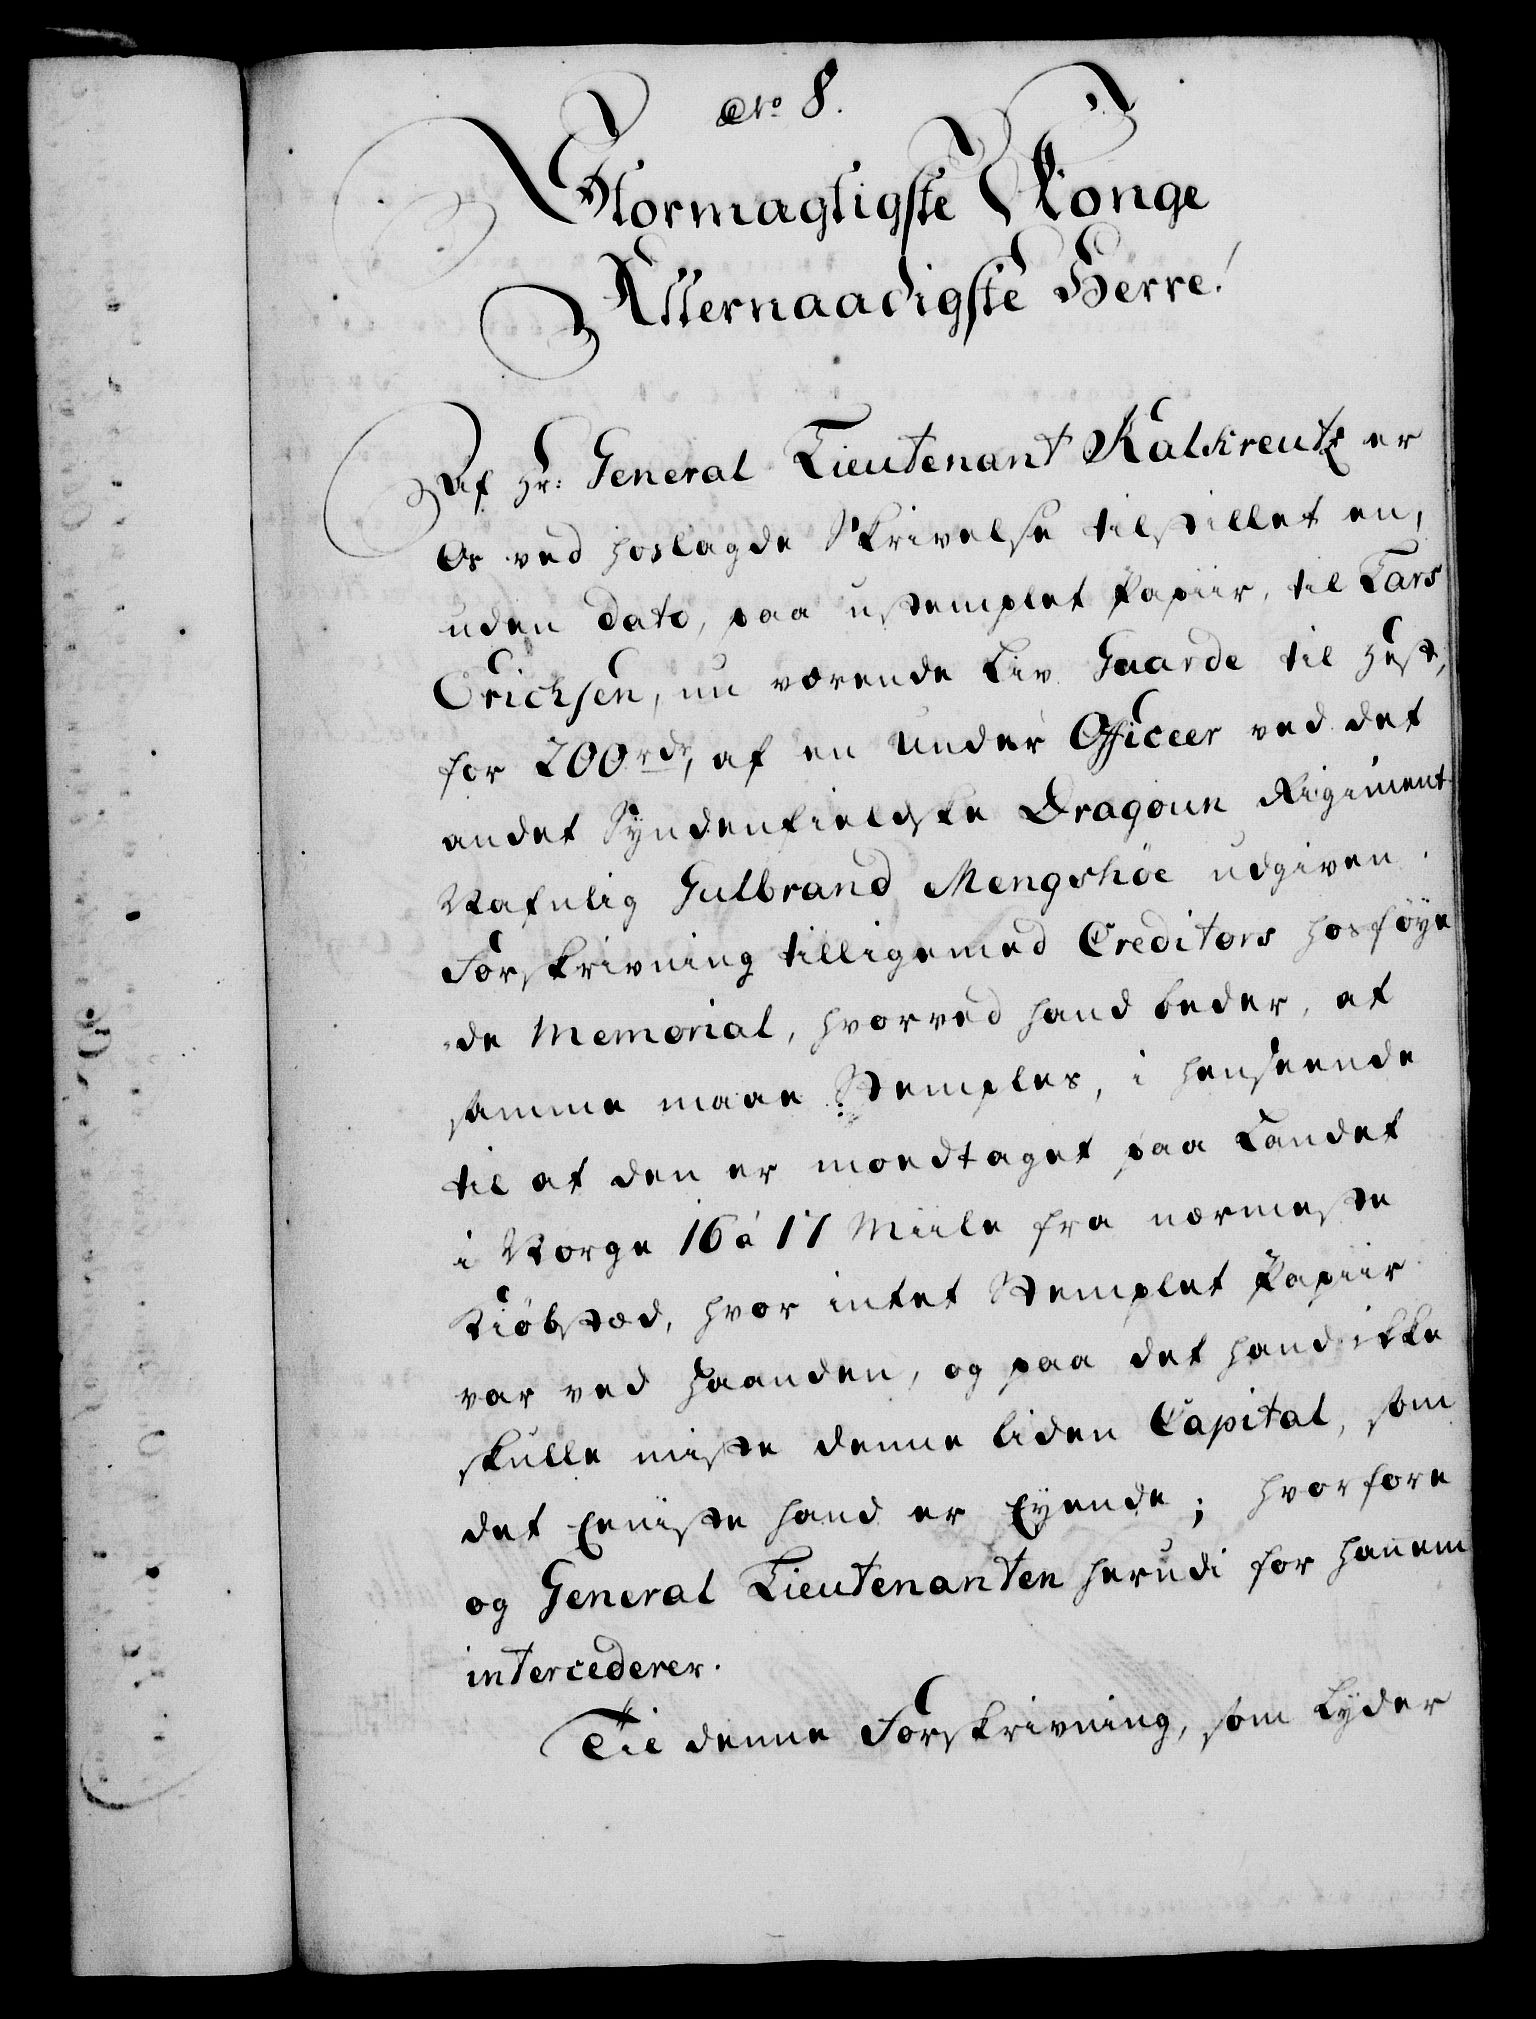 No. 8.
Stormagtigste Konge
Allernaadigste Herre!
Af Hr: General Lieutenant Kalkreutz er
Os ved hoslagde Skrivelse tilstillet en,
uden Dato, paa ustemplet Papiir, til Lars
Erichsen, nu værende Liv Guarde til Hest,
for 200 rdr, af en Under Officeer ved det
andet Syndenfieldske Dragoun Regiment
Nafnlig Gulbrand Mengshøe udgiven
Forskrivning tilligemed Creditors hosføye
-de Memorial, hvorved hand beder, at
samme maae Stemples, i henseende
til at den er modtaget paa Landet
i Norge 16 à 17 Miile fra nærmeste
Kiøbstæd, hvor intet Stemplet Papiir
var ved Haanden, og paa det hand ikke
skulle miste denne liden Capital, som
det Eeniste hand er Eyende; hvorfore
og General Lieutenanten herudi for hannem
intercederer.
Til denne Forskrivning, som lyder